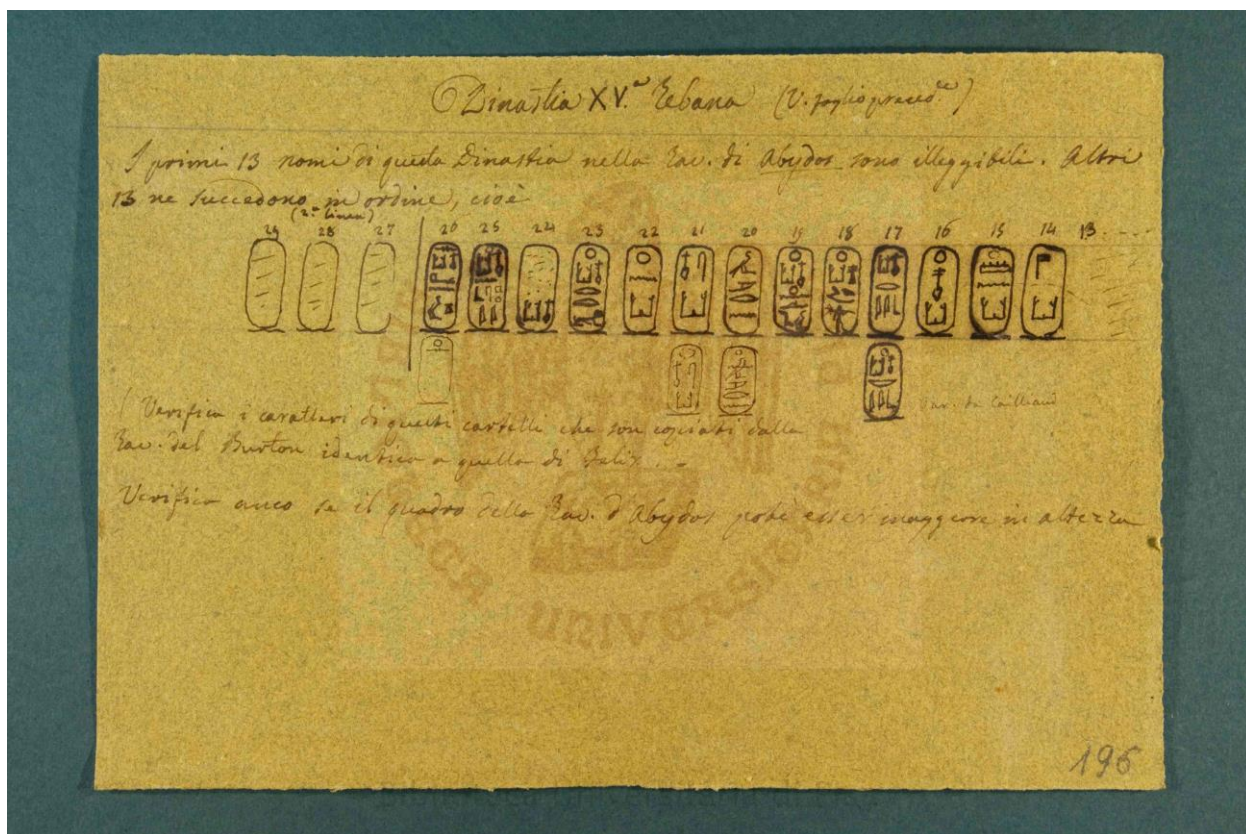 Dinastia XV.ª Tebana (V. foglio preced.te)
I primi 13 nomi di questa Dinastia nella Tav. di Abydos sono illeggibili. Altri
13 ne succedono in ordine, cioè
(2.ª linea)
29 28 27 26 25 24 23 22 21 20 19 18 17 16 15 14 13
Var. da Cailliaud
(Verifica i caratteri di questi cartelli che son copiati dalla
Tav. del Burton identica a quella di
Verifica anco se il quadro della Tav. d'Abydos potè esser maggiore in altezza
196